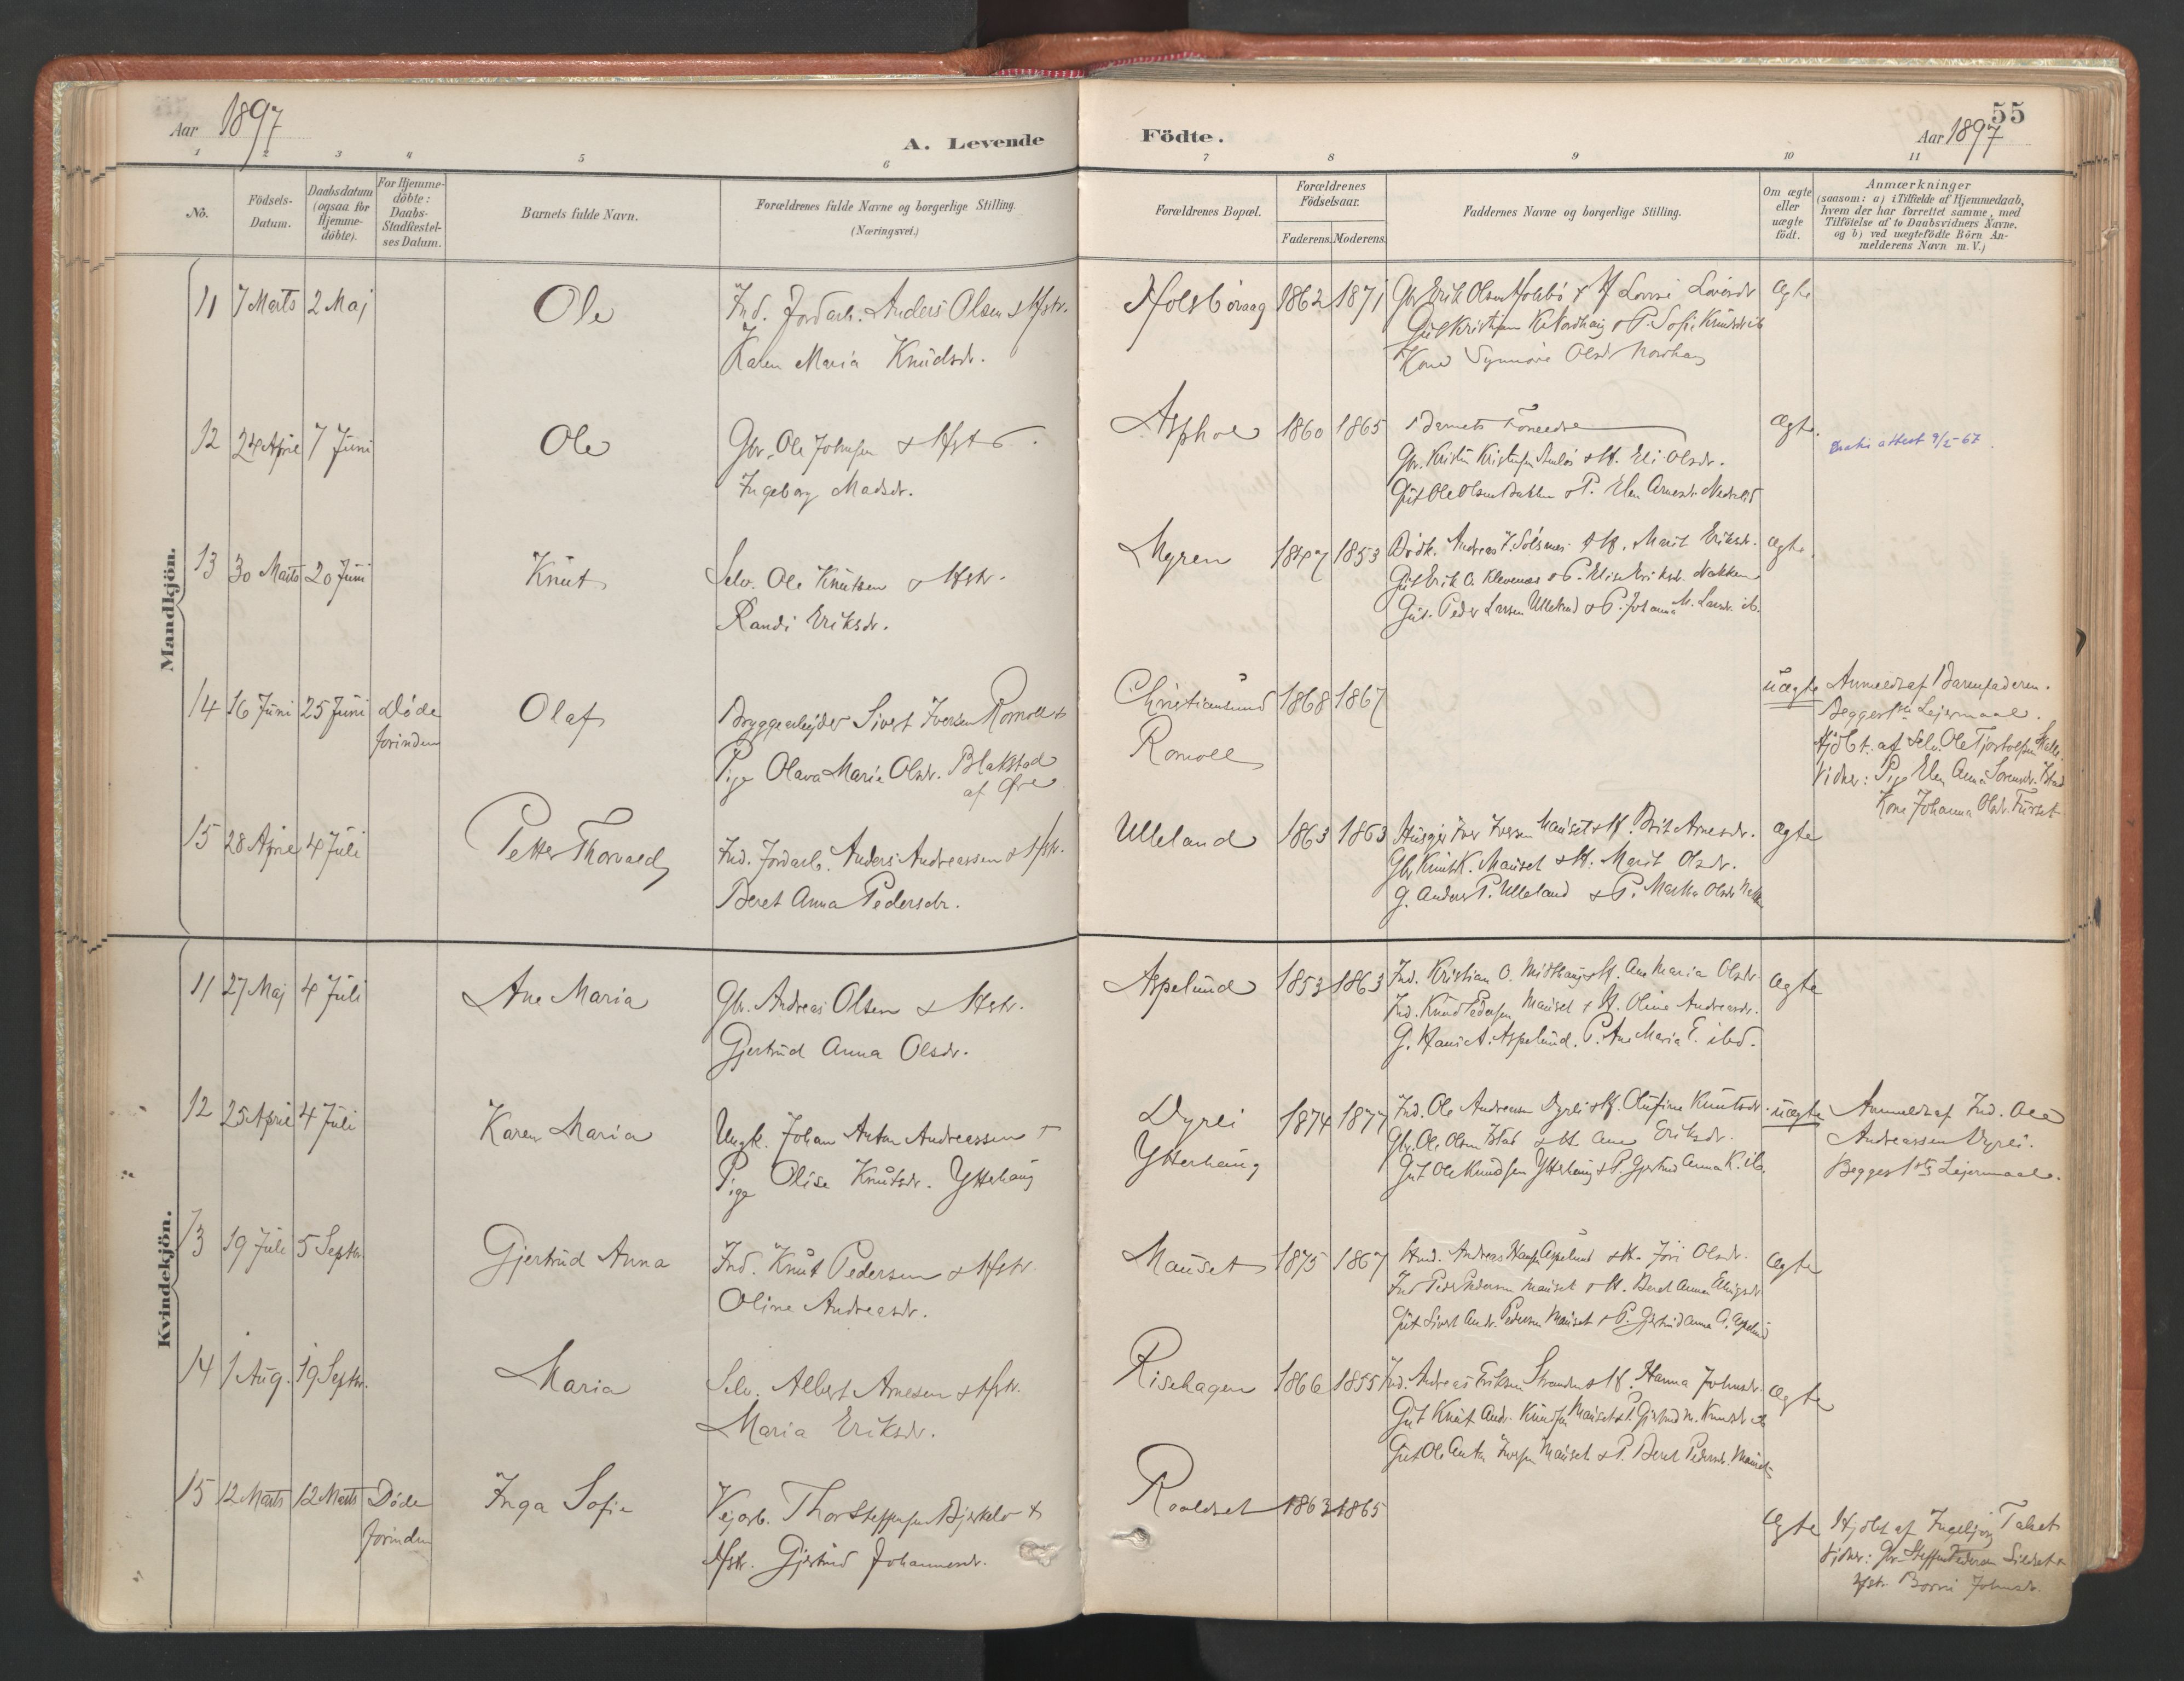 Aar 1897
A. Levende
Födte.
55
Aar 1897
1 2 3 4 5 6 7 8 9 10 11
No.
Födsels-
Datum.
Daabsdatum
(ogsaa for
Hjemme-
döbte).
For Hjemme-
döbte:
Daabs-
Stadfæstel-
ses Datum.
Barnets fulde Navn.
Forældrenes fulde Navne og borgerlige Stilling.
(Næringsvei.)
Forældrenes Bopæl.
Forældrenes
Födselsaar.
Faderens. Moderens.
Faddernes Navne og borgerlige Stilling.
Om ægte
eller
uægte
födt.
Anmærkninger
(saasom: a) i Tilfælde af Hjemmedaab,
hvem der har forrettet samme, med
Tilföielse af to Daabsvidners Navne,
og b) ved uægtefödte Börn An-
melderens Navn m. V.)
Mandkjön.
11 7 Marts 2 Maj
Ole
Ind. Jordarb. Anders Olsen & Hstr.
Karen Maria Knudsdr.
Holsbövaag 1862 1871
Gbr Erik Olsen Holsbö
Kone Synnøve Olsdr
ægte
12 24 April 7 Juni
Ole
Gbr. Ole Johnsen &
Ingeborg Madsdr.
Asphol 1860 1865
Barnets Forældre
Gbr. Kristen & H. Eli Olsdr.
Gut Ole Olsen Bakken & P. Elen Arnesdr.
ægte.
13 30 Marts 20 Juni
Knut
Selv. Ole Knutsen & Hstr.
Randi Eriksdr.
Myren 1847 1853
Andreas & H. Marit Eriksdr.
Gut Erik O. Klevenæs & P. Elise Eriksdr. Nakken
Gut. Peder Larsen Ulleland & P. Johanna M. Larsdr. ib.
ægte.
14 16 Juni 25 Juni Døde
forinden
Olaf
Bryggearbejder Sivert Iversen Romoll &
Pige Olava Maria Olsdr. Blakstad
af Øre
Christiansund 1868 1867
Romoll
uægte
Anmeldt af Barnefaderen.
Begges 1ste Lejermaal.
Hjdbt. af Selv. Ole
Vidner: Pige Elen Anna
Kone Johanna Olsdr. Furset
15 28 April 4 Juli
Petter Thorvald
Ind. Jordarb. Anders Andreassen & Hstr.
Beret Anna Pedersdr.
Ulleland 1863 1863
Iver Iversen Mauset & H. Brit Arnesdr.
Gbr Knut K. Mauset & H. Marit Olsdr.
G. Anders P. Ulleland & P. Martha Olsdr
ægte
Kvindekjön.
11 27 Maj 4 Juli
Ane Maria
Gbr. Andreas Olsen & Hstr.
Gjertrud Anna Olsdr.
Aspelund 1853 1863
Ind. Kristian O. Midthaug & H. Ane Maria Olsdr
Ind. Knud Pedersen Mauset & H. Oline Andreasdr.
G. Hans A. Aspelund. P. Ane Maria E. ibd.
ægte
12 25 April 4 Juli
Karen Maria
Ungk. Johan Anton Andreassen &
Pige Olise Knutsdr. Ytterhaug
Dyrli 1874 1877
Ytterhaug
Ind. Ole Andreasen Dyrli & H. Olufine Knutsdr.
Gbr. Ole Olsen & H. Ane Eriksdr.
Gut Ole Knudsen Ytterhaug & P. Gjertrud Anna K. ib.
uægte
Anmeldt af Ind. Ole
Andreassen Dyrli.
Begges 1ste Lejermaal.
13 19 Juli 5 Septbr.
Gjertrud Anna
Ind. Knut Pedersen & Hstr.
Oline Andreasdr.
Mauset 1875 1867
Andreas Hansen Aspelund & H. Jöri Olsdr.
Ind Peder Pedersen Mauset & H. Beret Anna
Gut Sivert Andr. Pedersen Mauset & P. Gjertrud Anna A. Aspelund
ægte
14 1 Aug. 19 Septbr.
Maria
Selv. Albert Arnesen & Hstr.
Maria Eriksdr.
Risehagen 1866 1855
Ind. Andreas Eriksen Stranden & H. Hanna Johnsdr.
Gut Knut Andr. Knudsen Mauset & P. Gjertrud M. Knudsdr ib
Gut Ole Anton Iversen Mauset & P. Beret Pedersdr. Mauset
ægte
15 12 Marts 12 Marts Døde
forinden
Inga Sofie
Vejarb. Thor Steffensen Bjerkeli &
Hstr. Gjertrud Johannesdr.
Roaldset 1863 1865
ægte
Hjdbt af Ingebjørg
Vidner: Gbr Steffen Pedersen
Hstr. Johnsdr.